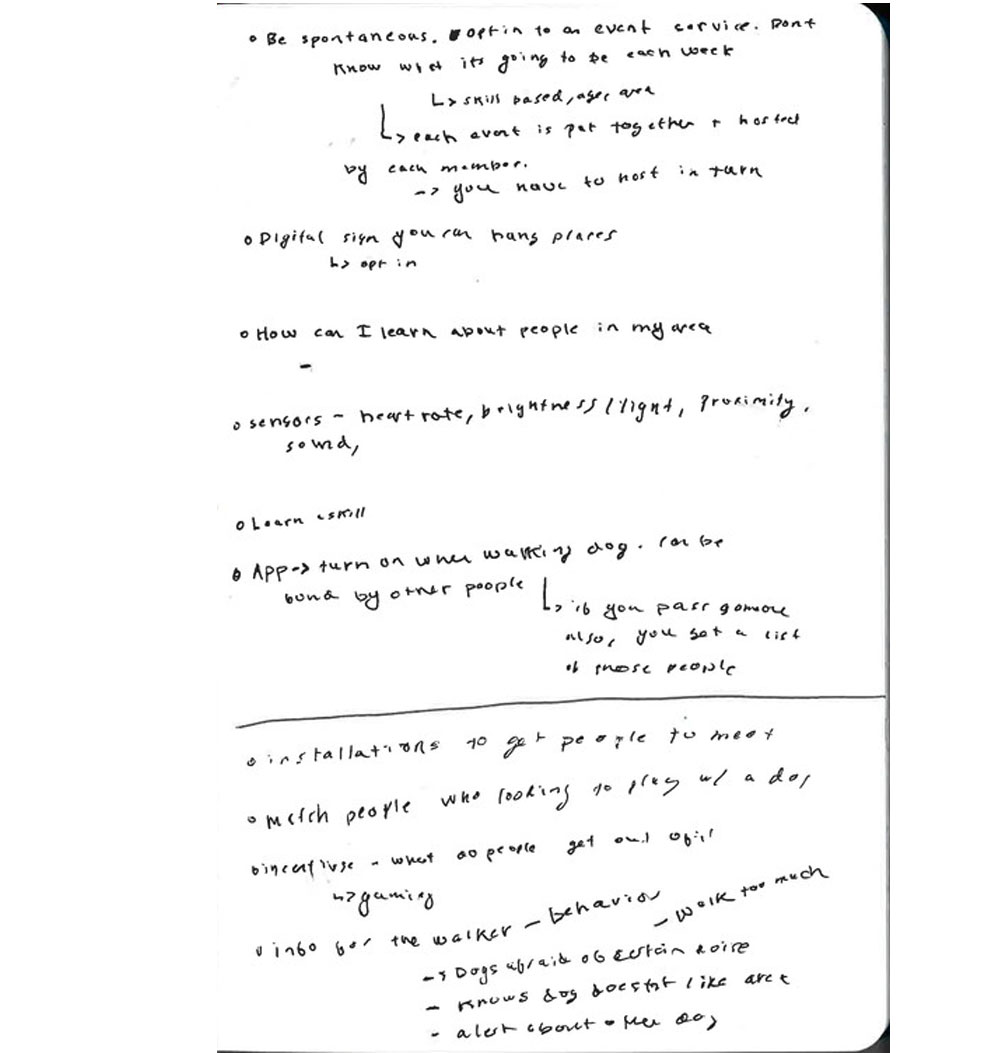 • Be spontaneous. opt in to an event service. Dont
know what its going to be each week
↳ skill based, age, area
↳ each event is put together + hosted
by each member.
-> you have to host in turn
• Digital sign you can hang places
↳ opt in
• How can I learn about people in my area
-
• sensors - heart rate, brightness/light, proximity,
sound,
• Learn a skill
• App -> turn on when walking dog. Can be
found by other people
↳ if you pass someone
also, you get a list
of those people
• installations to get people to meet
• match people who looking to play w/ a dog
• incentivse - what do people get out of it
↳ gaming
• info for the walker - behavior
- walk too much
-> Dogs afraid of certain noise
- knows dog doesnt like area
- alert about other dog